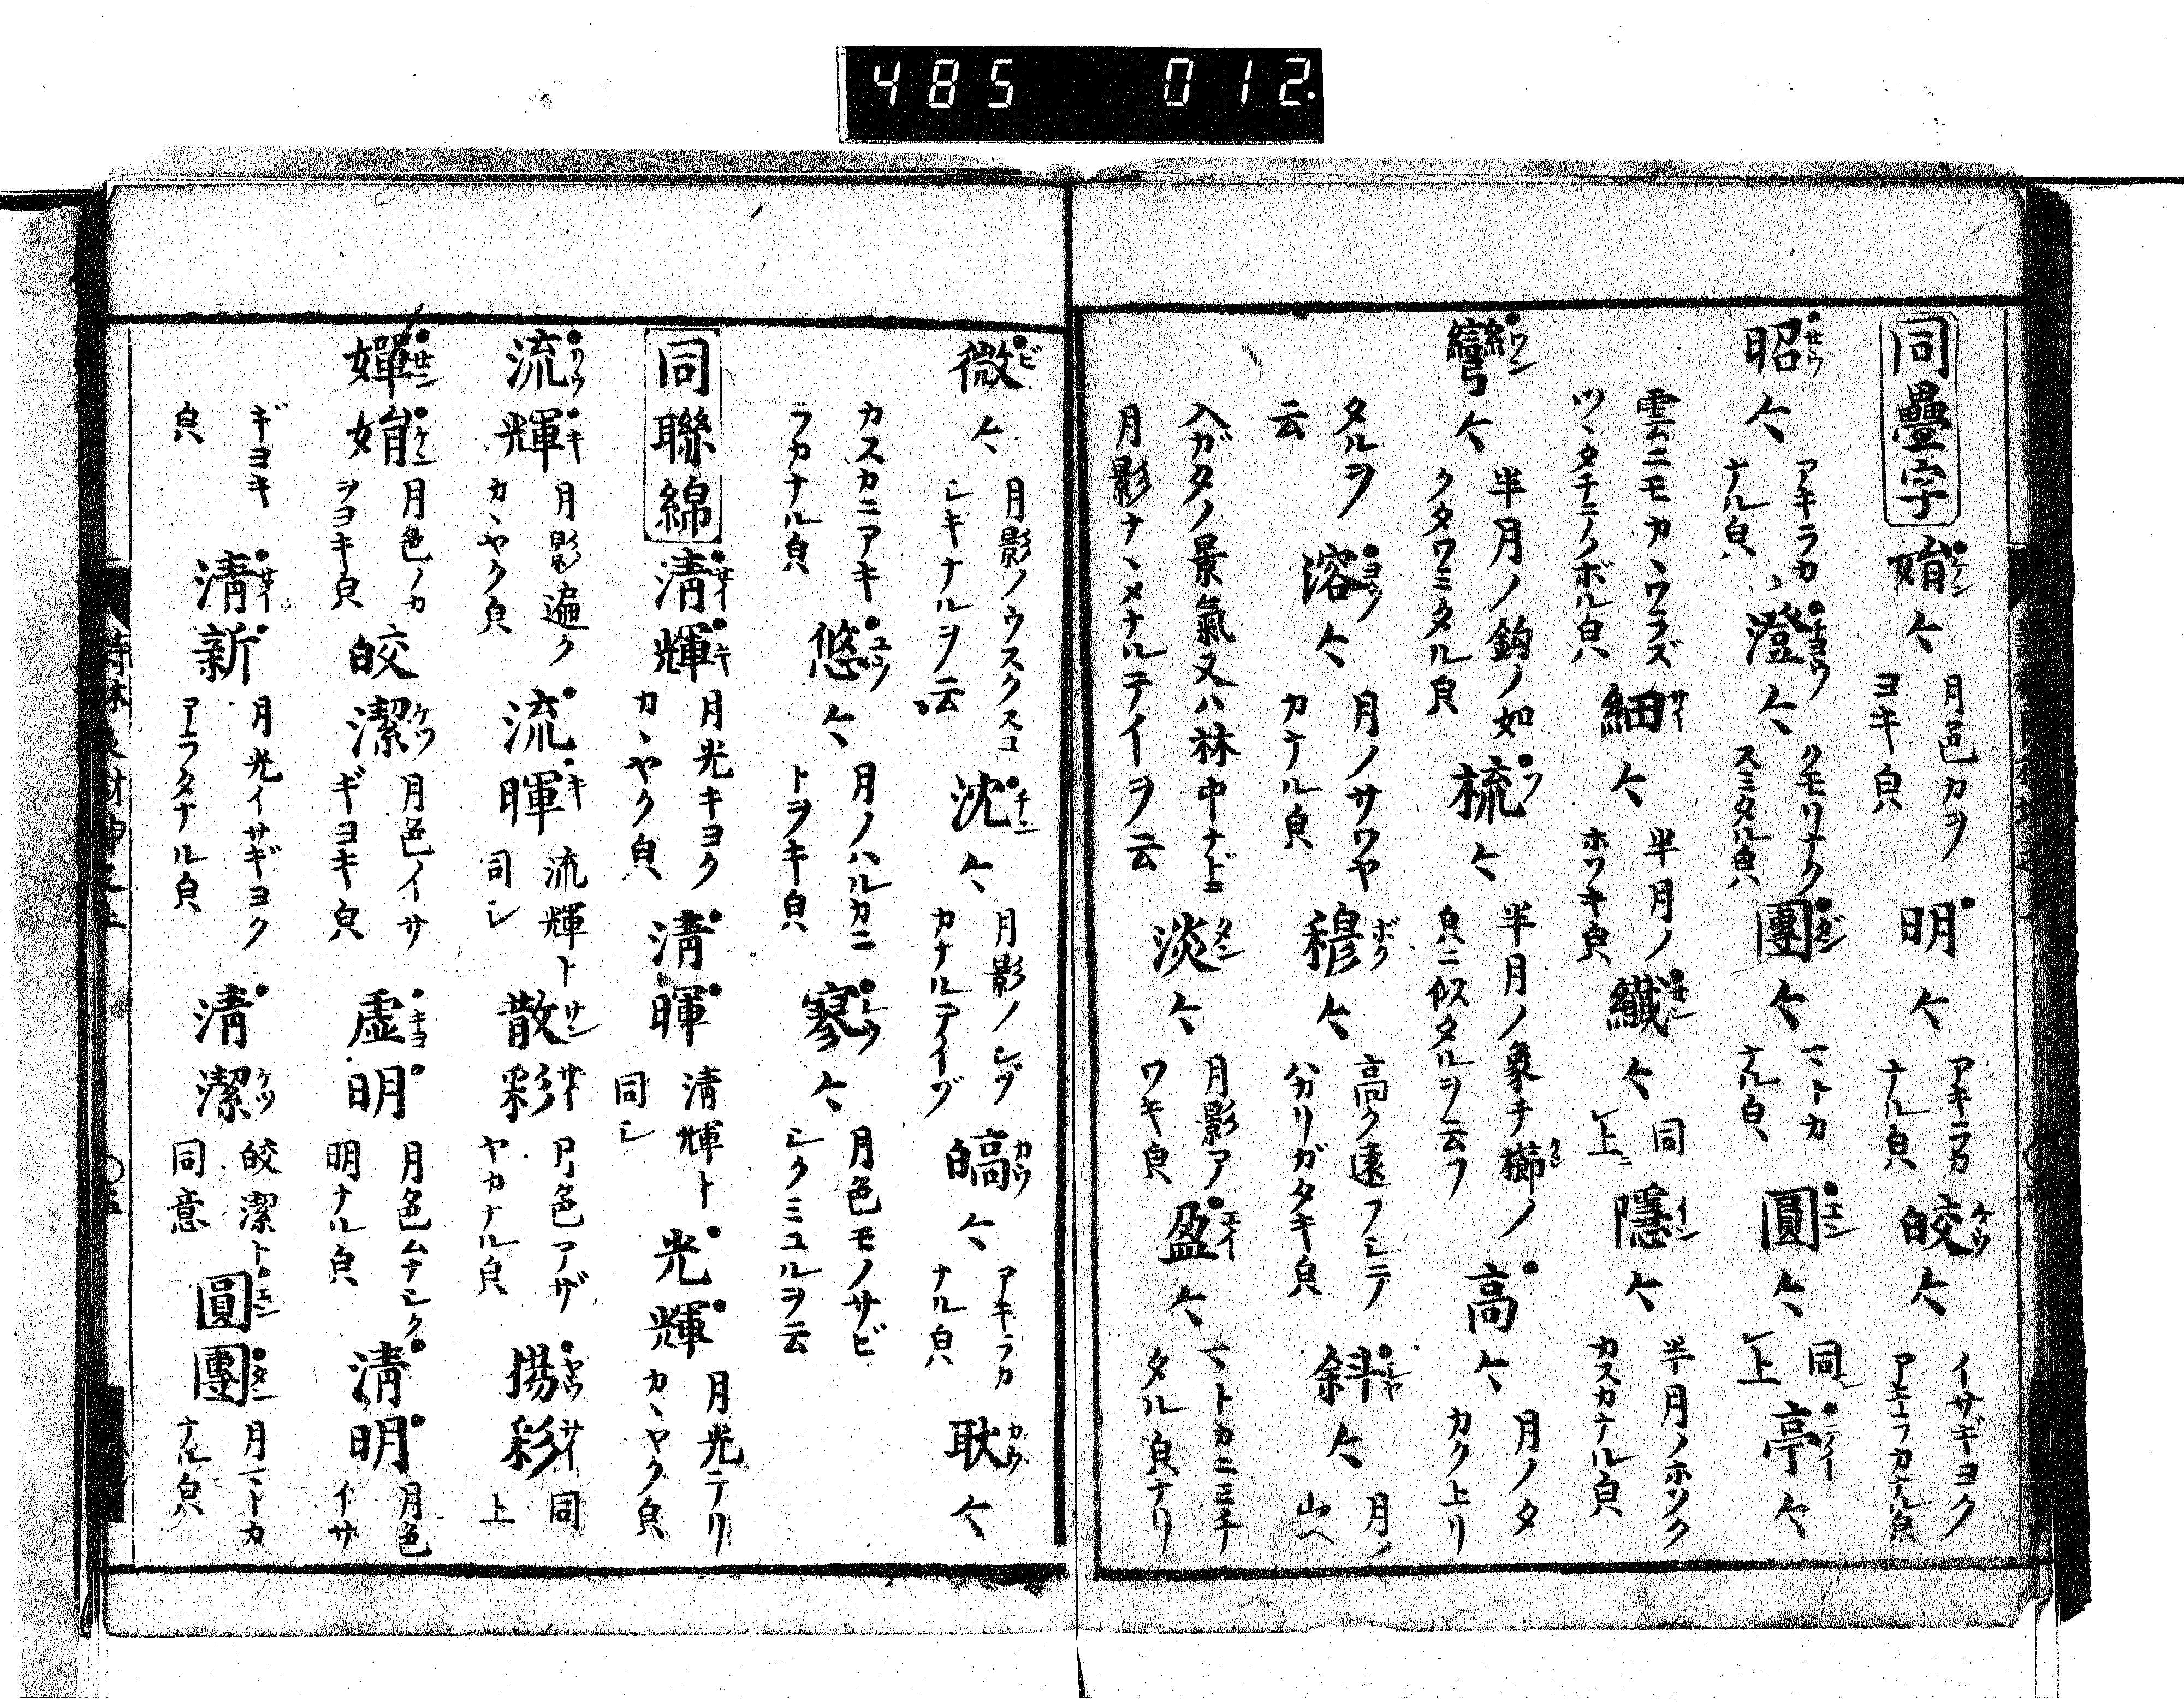 485 012.
同疊字 娟〻 月色カヲヨキ皃 明〻 アキラカナル皃 皎〻 イサギヨクアキラカナル皃
昭〻 アキラカナル皃 澄〻 クモリナクスミタル皃 團〻 マトカナル皃 圓〻 同レ上 亭〻
雲ニモカヽワラズツヽタチニノボル皃 細〻 半月ノホソキ皃 纎〻 同レ上ニ 隱〻 半月ノホソクカスカナル皃
彎〻 半月ノ鈎ノ如クタワミタル皃 梳〻 半月ノ象チ櫛ノ皃ニ似タルヲ云フ 高〻 月ノタカク上リ
タルヲ云 溶〻 月ノサワヤカナル皃 穆〻 高ク遠フシテハカリガタキ皃 斜〻 月ノ山ヘ
入ガタノ景氣又ハ林中ナドニ月影ナヽメナルテイヲ云 淡〻 月影アワキ皃 盈〻 マトカニミチタル皃ナリ
微〻 月影ノウスクスコシキナルヲ云 沈〻 月影ノシヅカナルテイヅ 皜〻 アキラカナル皃 耿〻
カスカニアキラカナル皃 悠〻 月ノハルカニトヲキ皃 寥〻 月色モノサビシクミユルヲ云
同聯綿 清輝 月光キヨクカヽヤク皃 清暉 清輝ト同シ 光輝 月光テリカヽヤク皃
流輝 月影遍クカヽヤク皃 流暉 流輝ト同シ 散彩 月色アザヤカナル皃 揚彩 同上
嬋娟 月色ノカヲヨキ皃 皎潔 月色イサギヨキ皃 虚明 月色ムナシク明ナル皃 清明 月色イサ
ギヨキ皃 清新 月光イサギヨクアラタナル皃 清潔 皎潔ト同意 圓團 月マトカナル皃